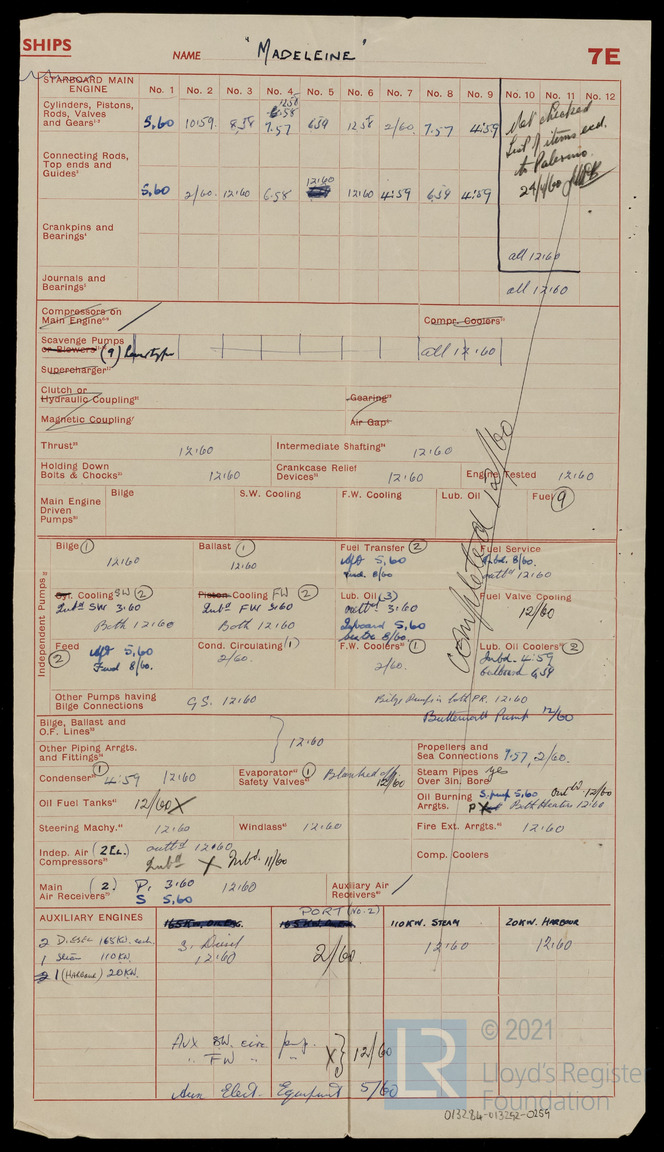 SHIPS
NAME "MADELEINE"
7E
STARBOARD MAIN ENGINE No. 1 No. 2 No. 3 No. 4 No. 5 No. 6 No. 7 No. 8 No. 9 No. 10 No. 11 No. 12
Cylinders, Pistons, Rods, Valves and Gears
5,60 10.59 8,58 12.58 6.58 7.57 6.59 12.58 2/60 7.57 4.59
Not checked
List of items ecd.
to Palermo.
24/4/60
Connecting Rods, Top ends and Guides
5,60 2/60. 12.60 6.58 12.60 12.60 4.59 6.59 4.59
Crankpins and Bearings
all 12.60
Journals and Bearings
all 12.60
Compressors on Main Engine
Compr. Coolers
Scavenge Pumps or Blowers (9) all 12.60
Supercharger
Clutch or Hydraulic Coupling
Gearing
Magnetic Coupling
Air Gap
Thrust 12.60 Intermediate Shafting 12.60
Holding Down Bolts & Chocks 12.60 Crankcase Relief Devices 12.60 Engine Tested 12.60
completed 12/60
Main Engine Driven Pumps Bilge S.W. Cooling F.W. Cooling Lub. Oil Fuel 9
Independent Pumps
Bilge 1 Ballast 1 Fuel Transfer 2 Fuel Service
12.60 12.60 5,60 Inbd. 8/60.
Fwd. 8/60 outbd 12.60
Cyl. Cooling SW 2 Piston Cooling FW 2 Lub. Oil (3) Fuel Valve Cooling
Inbd SW 3.60 Inbd FW 3.60 outbd 3.60 12/60
Both 12.60 Both 12.60 Inboard 5,60
Centre 8/60.
Feed 2 Cond. Circulating (1) F.W. Coolers 1 Lub. Oil Coolers 2
Aft 5,60 2/60. 2/60. Inbd. 4.59
Fwd 8/60. Outboard 6.59
Other Pumps having Bilge Connections G.S. 12.60 Bilge Pump in both P.R. 12.60
Butterworth Pump 12/60
Bilge, Ballast and O.F. Lines
12.60
Other Piping Arrgts. and Fittings
Propellers and Sea Connections 9.57, 2/60.
Condenser 1 4.59 12.60 Evaporator 1 Safety Valves Blanked off. 12/60
Steam Pipes Over 3in. Bore yes
Oil Fuel Tanks 12/60 X
Oil Burning Arrgts. S. pump 5,60 Outbd 12/60
P Both Heaters 12.60
Steering Machy. 12.60 Windlass 12.60 Fire Ext. Arrgts. 12.60
Indep. Air Compressors (2 EL.) outbd 12.60
Inbd X Inbd. 11/60
Comp. Coolers
Main Air Receivers (2) P, 3.60 12.60
S 5,60
Auxiliary Air Receivers
AUXILIARY ENGINES 165 KW. PORT (No. 2) 110 KW. STEAM 20 KW. HARBOUR
2 DIESEL 165 KW. each. S. Diesel 2/60 12.60 12.60
1 Steam 110 KW 12.60
1 (HARBOUR) 20 KW.
Aux SW. circ pmp.
" FW " "
X } 12/60
Aux Elect. Equipment 5/60
© 2021
LR
Lloyd's Register
Foundation
013284-013292-0259